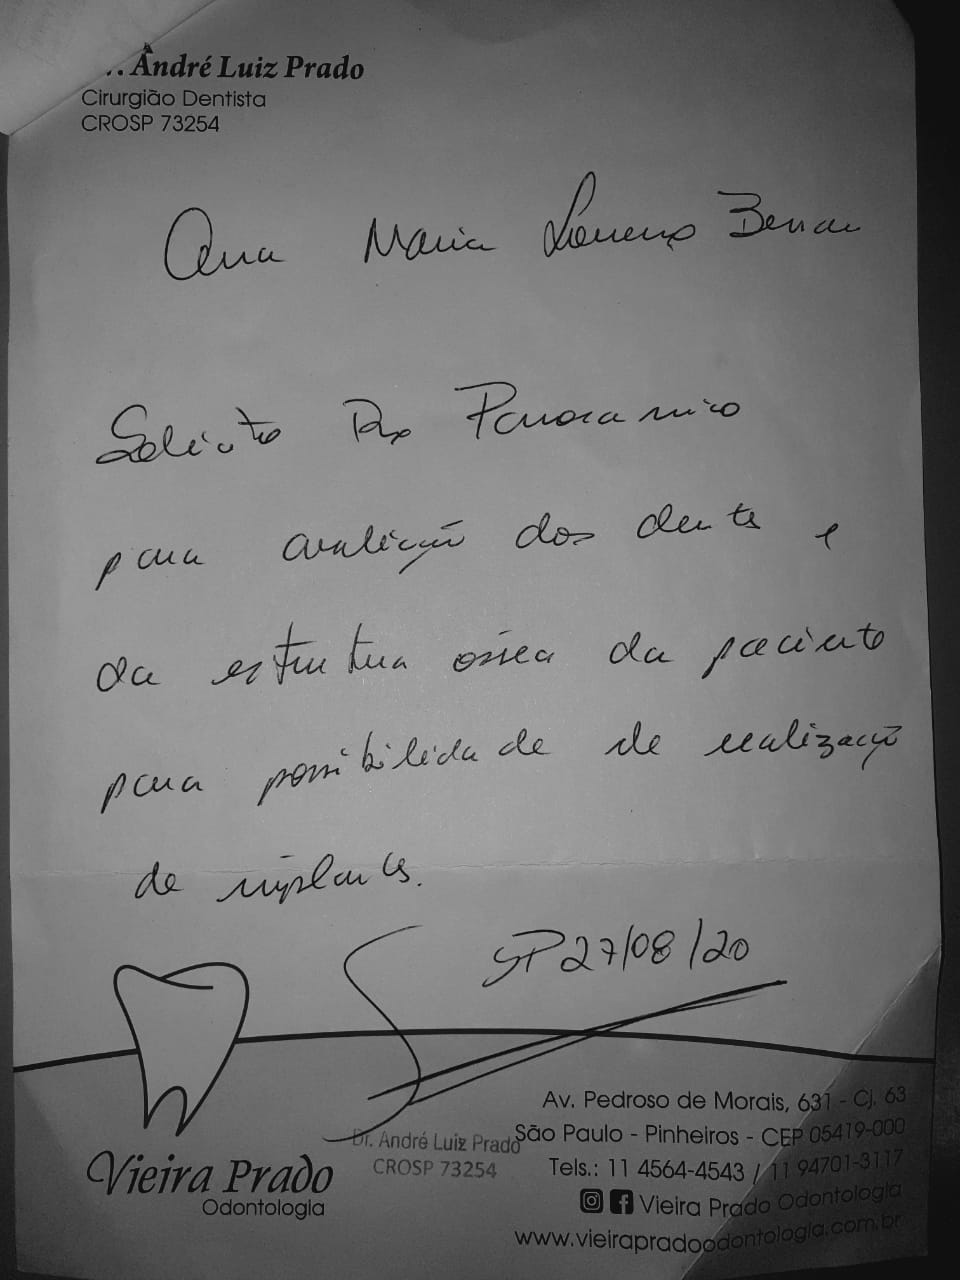 André Luiz Prado
Cirurgião Dentista
CROSP 73254
Ana Maria
Solicito Rx Panoramico
para avaliação dos dentes e
da estrutura óssea da paciente
para possibilidade de realização
de implantes.
SP 27/08/20
Av. Pedroso de Morais, 631 - Cj. 63
São Paulo - Pinheiros - CEP 05419-000
Tels.: 11 4564-4543 / 11 94701-3117
Vieira Prado Odontologia
www.vieirapradoodontologia.com.br
Dr. André Luiz Prado
CROSP 73254
Vieira Prado
Odontologia